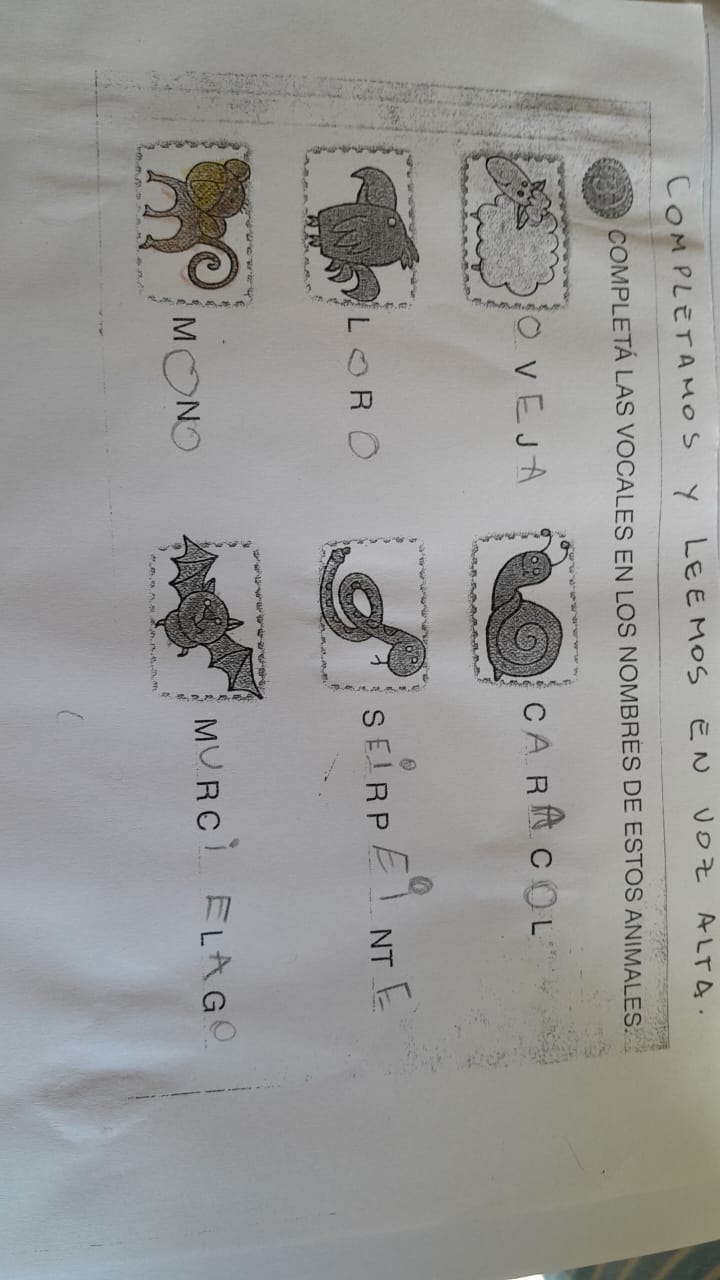 COMPLETAMOS Y LEEMOS EN VOZ ALTA.
COMPLETÁ LAS VOCALES EN LOS NOMBRES DE ESTOS ANIMALES.
OVEJA
CARACOL
LORO
SEIRPEINTE
MONO
MURCIELAGO